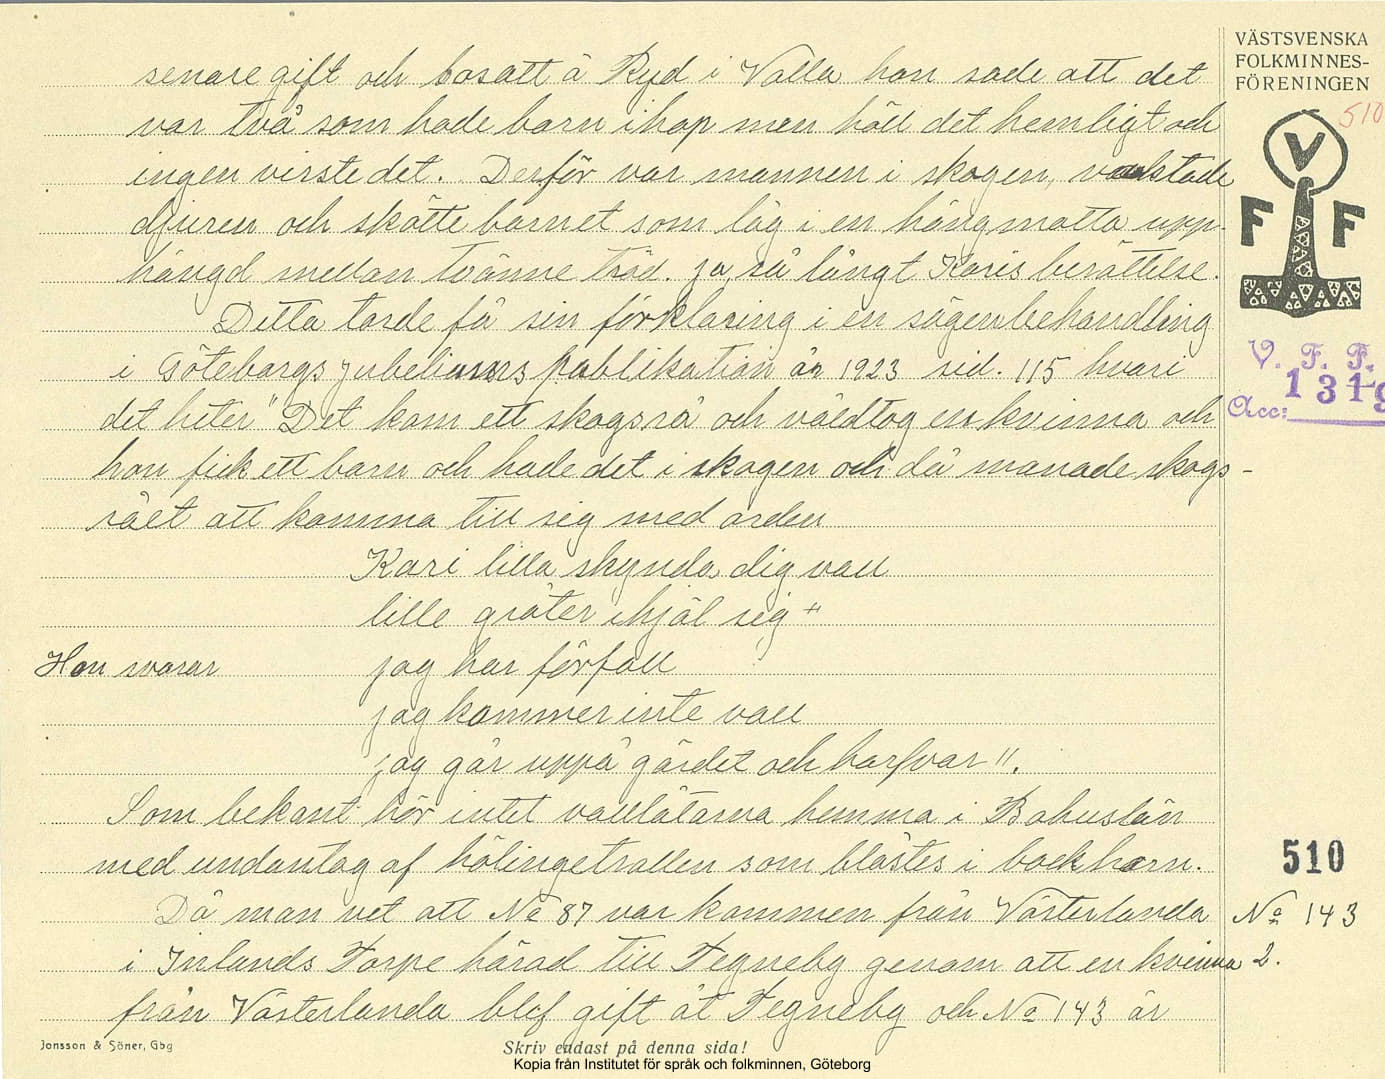 VÄSTSVENSKA
FOLKMINNES-
FÖRENINGEN
510
V
F F
V. F. F.
Acc: 1319
senare gift och bosatt å Ryd i Valla hon sade att det
var två som hade barn ihop men höll det hemligt och
ingen visste det. Derför var mannen i skogen, vaktade
djuren och skötte barnet som låg i en hängmatta upp-
hängd mellan tvänne träd. Ja, så långt Karis berättelse.
Detta torde få sin förklaring i en sägenbehandling
i Göteborgs Jubeliums publikation år 1923 sid. 115 hvari
det heter "Det kom ett skogsrå och våldtog en kvinna och
hon fick ett barn och hade det i skogen och då manade skogs-
rået att komma till sig med orden
Kari lilla skynda dig vall
lille gråter ihjäl sig"
Hon svarar jag har förfall
jag kommer inte vall
jag går uppå gärdet och harfvar".
Som bekant hör intet vallåtarna hemma i Bohuslän
med undantag af hölingetrallen som blåstes i bockhorn.
Då man vet att No 87 var kommen från Västerlanda
i Inlands Torpe härad till Tegneby genom att en kvinna
från Västerlanda blef gift åt Tegneby och No 143 är
510
No 143
2.
Jonsson & Söner, Gbg
Skriv endast på denna sida!
Kopia från Institutet för språk och folkminnen, Göteborg